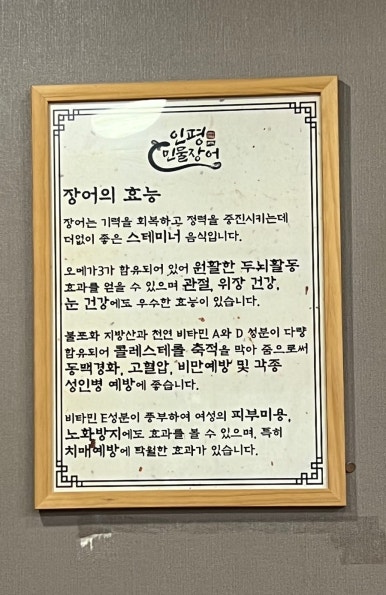 인평
민물장어
장어의 효능
장어는 기력을 회복하고 정력을 증진시키는데
더없이 좋은 스테미너 음식입니다.
오메가3가 함유되어 있어 원활한 두뇌활동
효과를 얻을 수 있으며 관절, 위장 건강,
눈 건강에도 우수한 효능이 있습니다.
불포화 지방산과 천연 비타민 A와 D 성분이 다량
함유되어 콜레스테롤 축적을 막아 줌으로써
동맥경화, 고혈압, 비만예방 및 각종
성인병 예방에 좋습니다.
비타민 E성분이 풍부하여 여성의 피부미용,
노화방지에도 효과를 볼 수 있으며, 특히
치매예방에 탁월한 효과가 있습니다.